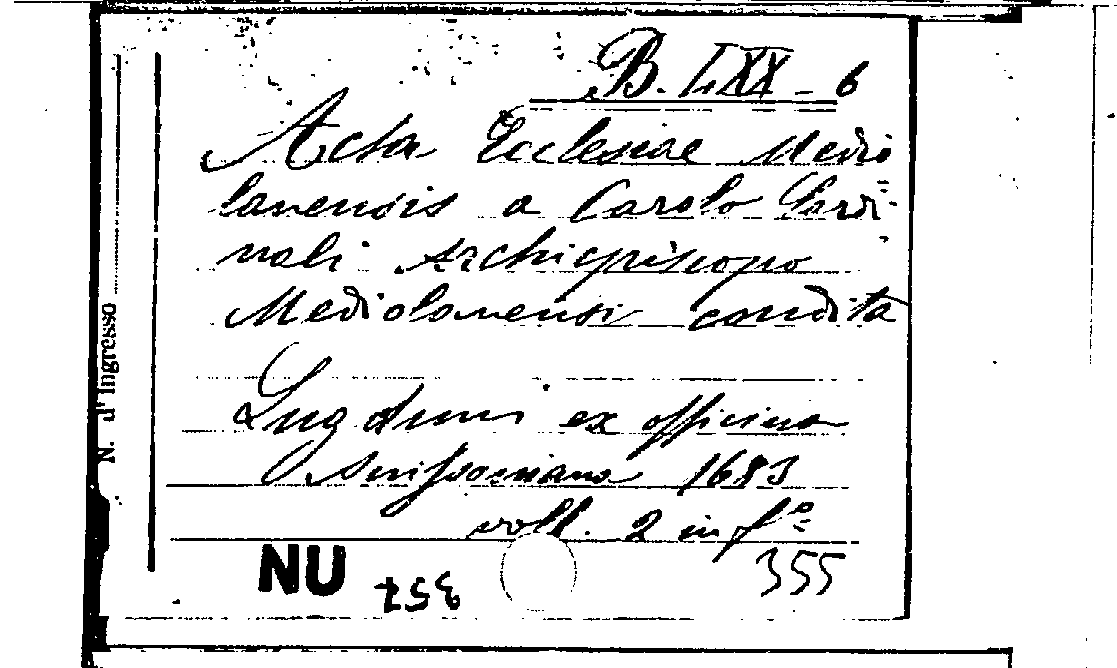 B. LXX - 6
Acta Ecclesiae Medio
lanensis a Carolo Cardi=
nali Archiepiscopo
Mediolanensi condita
Lugduni ex officina
Anissoniana 1683
voll. 2 in fº
N. d'Ingresso
NU 357
355